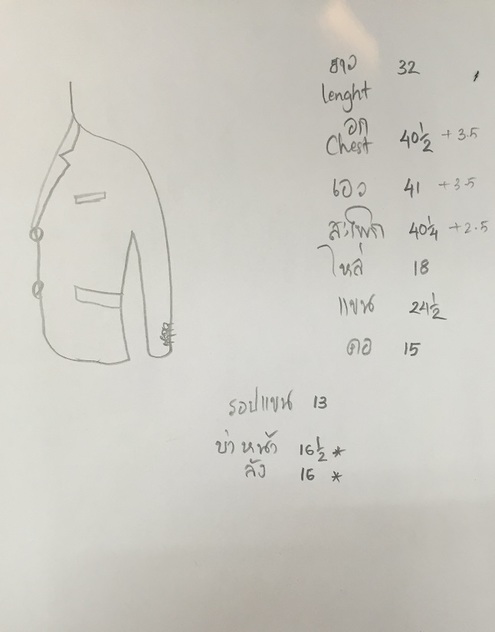 ยาว 32
lenght
อก
Chest 40 1/2 + 3.5
เอว 41 + 3.5
สะโพก 40 1/4 + 2.5
ไหล่ 18
แขน 24 1/2
คอ 15
รอบแขน 13
บ่าหน้า 16 1/2 *
ลัง 16 *